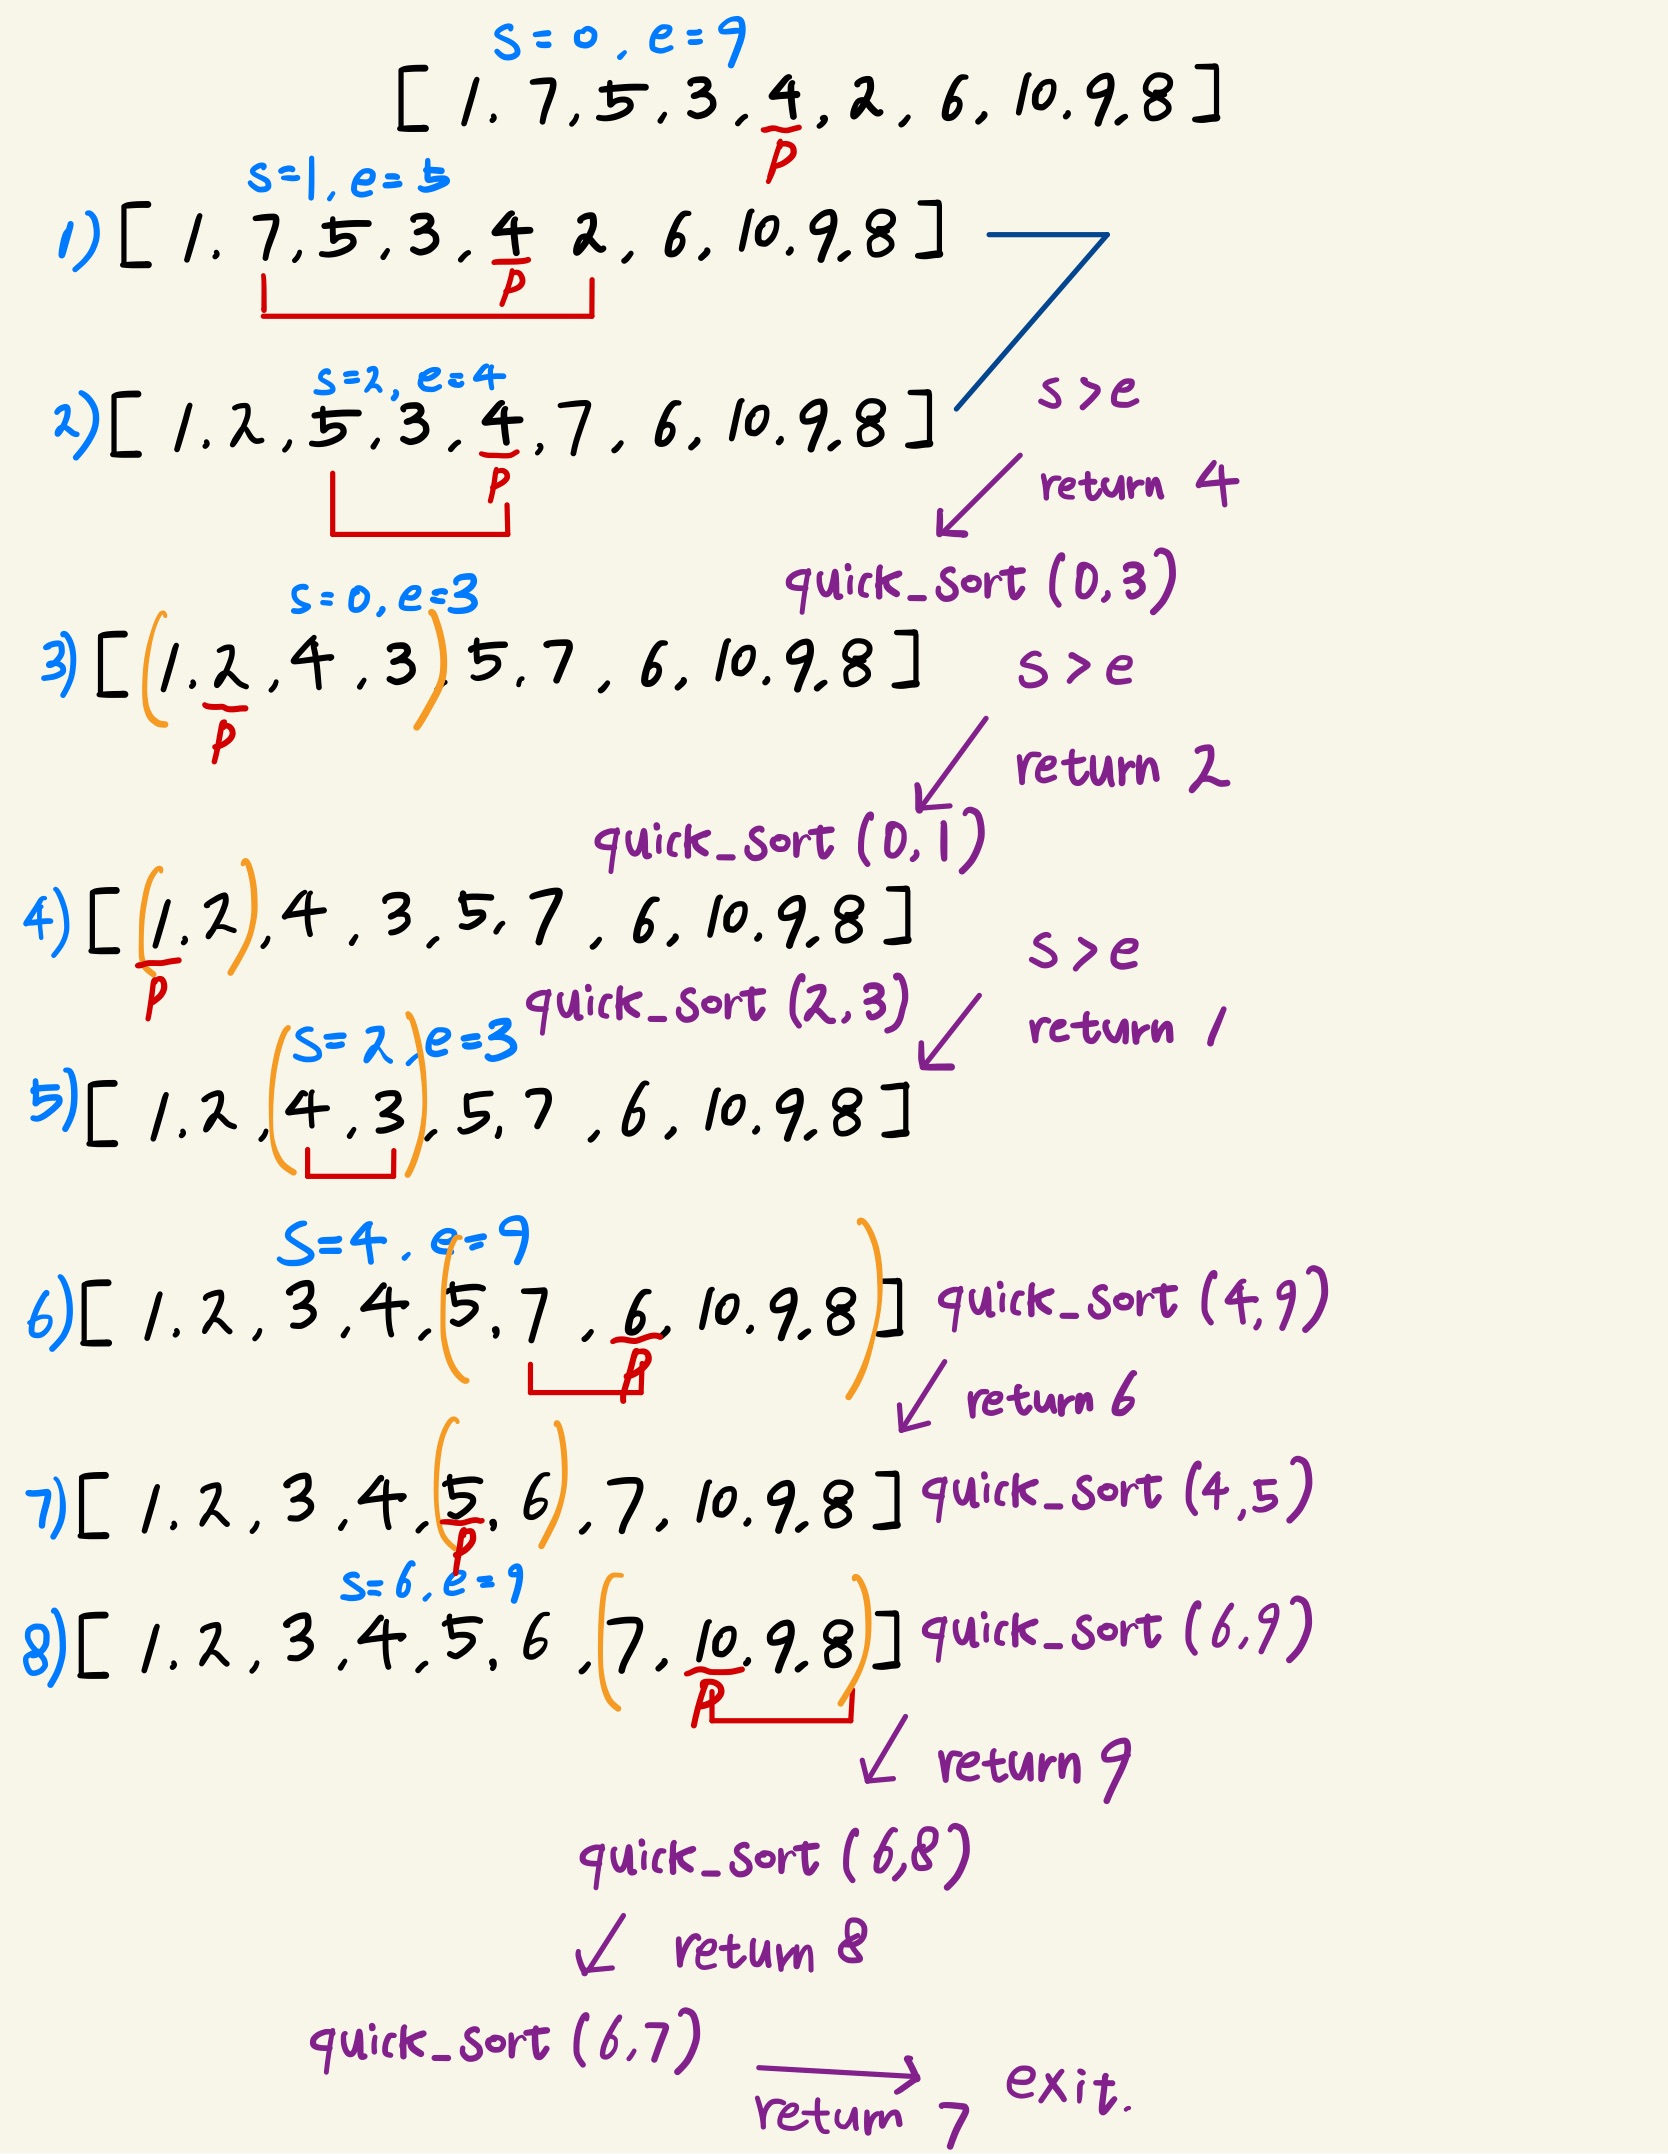 s=0, e=9
[ 1. 7, 5, 3, 4, 2, 6, 10. 9, 8 ]
p
s=1, e=5
1) [ 1. 7, 5, 3, 4 2, 6, 10. 9, 8 ]
p
s=2, e=4
s>e
2) [ 1. 2, 5, 3, 4, 7, 6, 10. 9, 8 ]
p
return 4
quick_sort (0,3)
s=0, e=3
3) [ (1. 2, 4, 3), 5. 7, 6, 10. 9, 8 ]
s>e
p
return 2
quick_sort (0,1)
4) [ (1. 2), 4, 3, 5, 7, 6, 10. 9, 8 ]
s>e
p
quick_sort (2,3)
return 1
s=2, e=3
5) [ 1. 2, (4, 3), 5, 7, 6, 10. 9, 8 ]
s=4, e=9
6) [ 1. 2, 3, 4, (5, 7, 6, 10. 9, 8) ] quick_sort (4,9)
p
return 6
7) [ 1. 2, 3, 4, (5, 6), 7, 10. 9, 8 ] quick_sort (4,5)
p
s=6, e=9
8) [ 1. 2, 3, 4, 5, 6, (7, 10. 9, 8) ] quick_sort (6,9)
p
return 9
quick_sort (6,8)
return 8
quick_sort (6,7)
return 7
exit.